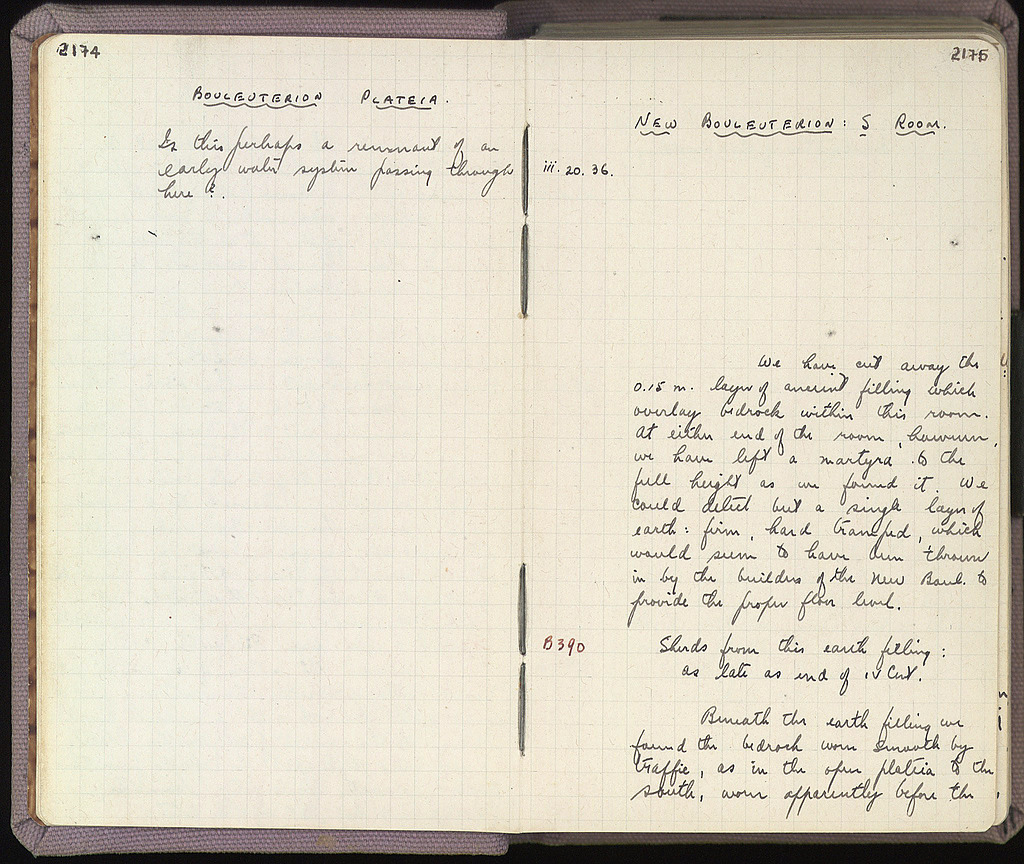 2174
BOULEUTERION PLATEIA.
Is this perhaps a remnant of an
early water system passing through
here?.
2175
NEW BOULEUTERION: S ROOM.
iii. 20. 36.
We have cut away the
0.15 m. layer of ancient filling which
overlay bedrock within this room.
At either end of the room, however,
we have left a martyra to the
full height as we found it. We
could detect but a single layer of
earth: firm, hard tramped, which
would seem to have been thrown
in by the builders of the New Boul. to
provide the proper floor level.
B390
Sherds from this earth filling:
as late as end of IV Cent.
Beneath the earth filling we
found the bedrock worn smooth by
traffic, as in the open plateia to the
south, worn apparently before the